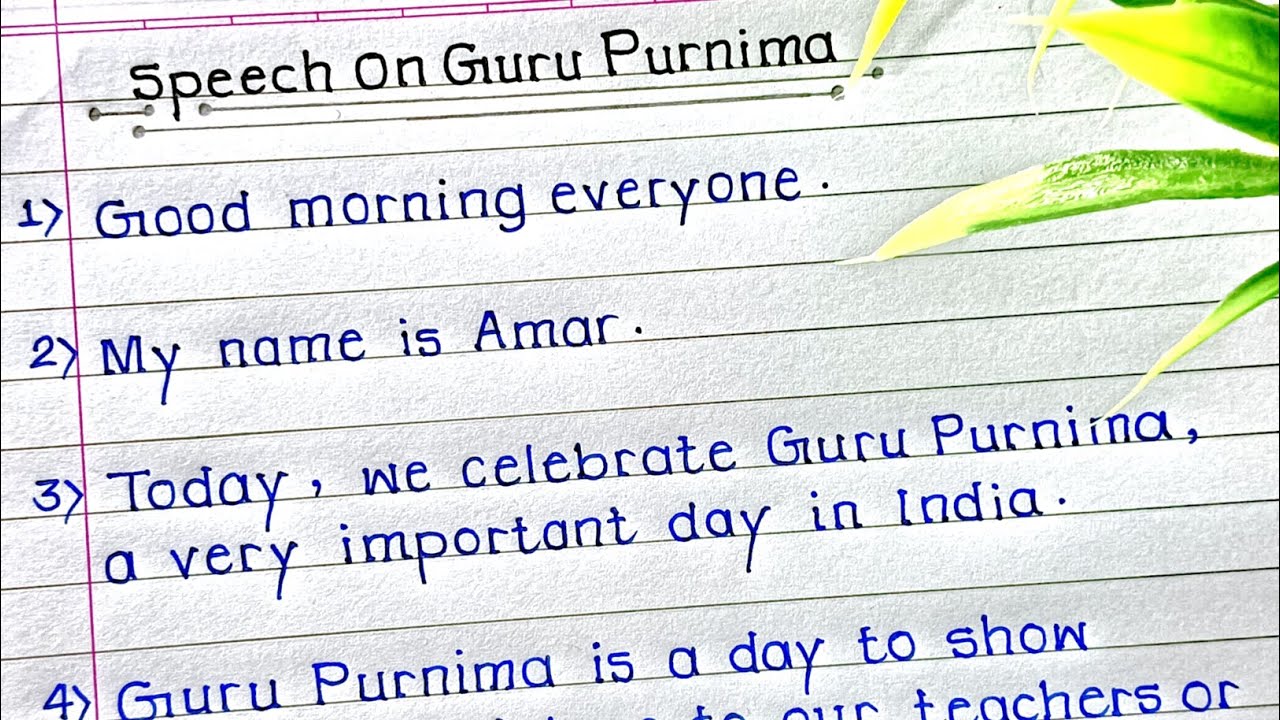 Speech On Guru Purnima
1) Good morning everyone.
2) My name is Amar.
3) Today, we celebrate Guru Purnima,
a very important day in India.
4) Guru Purnima is a day to show
to our teachers or